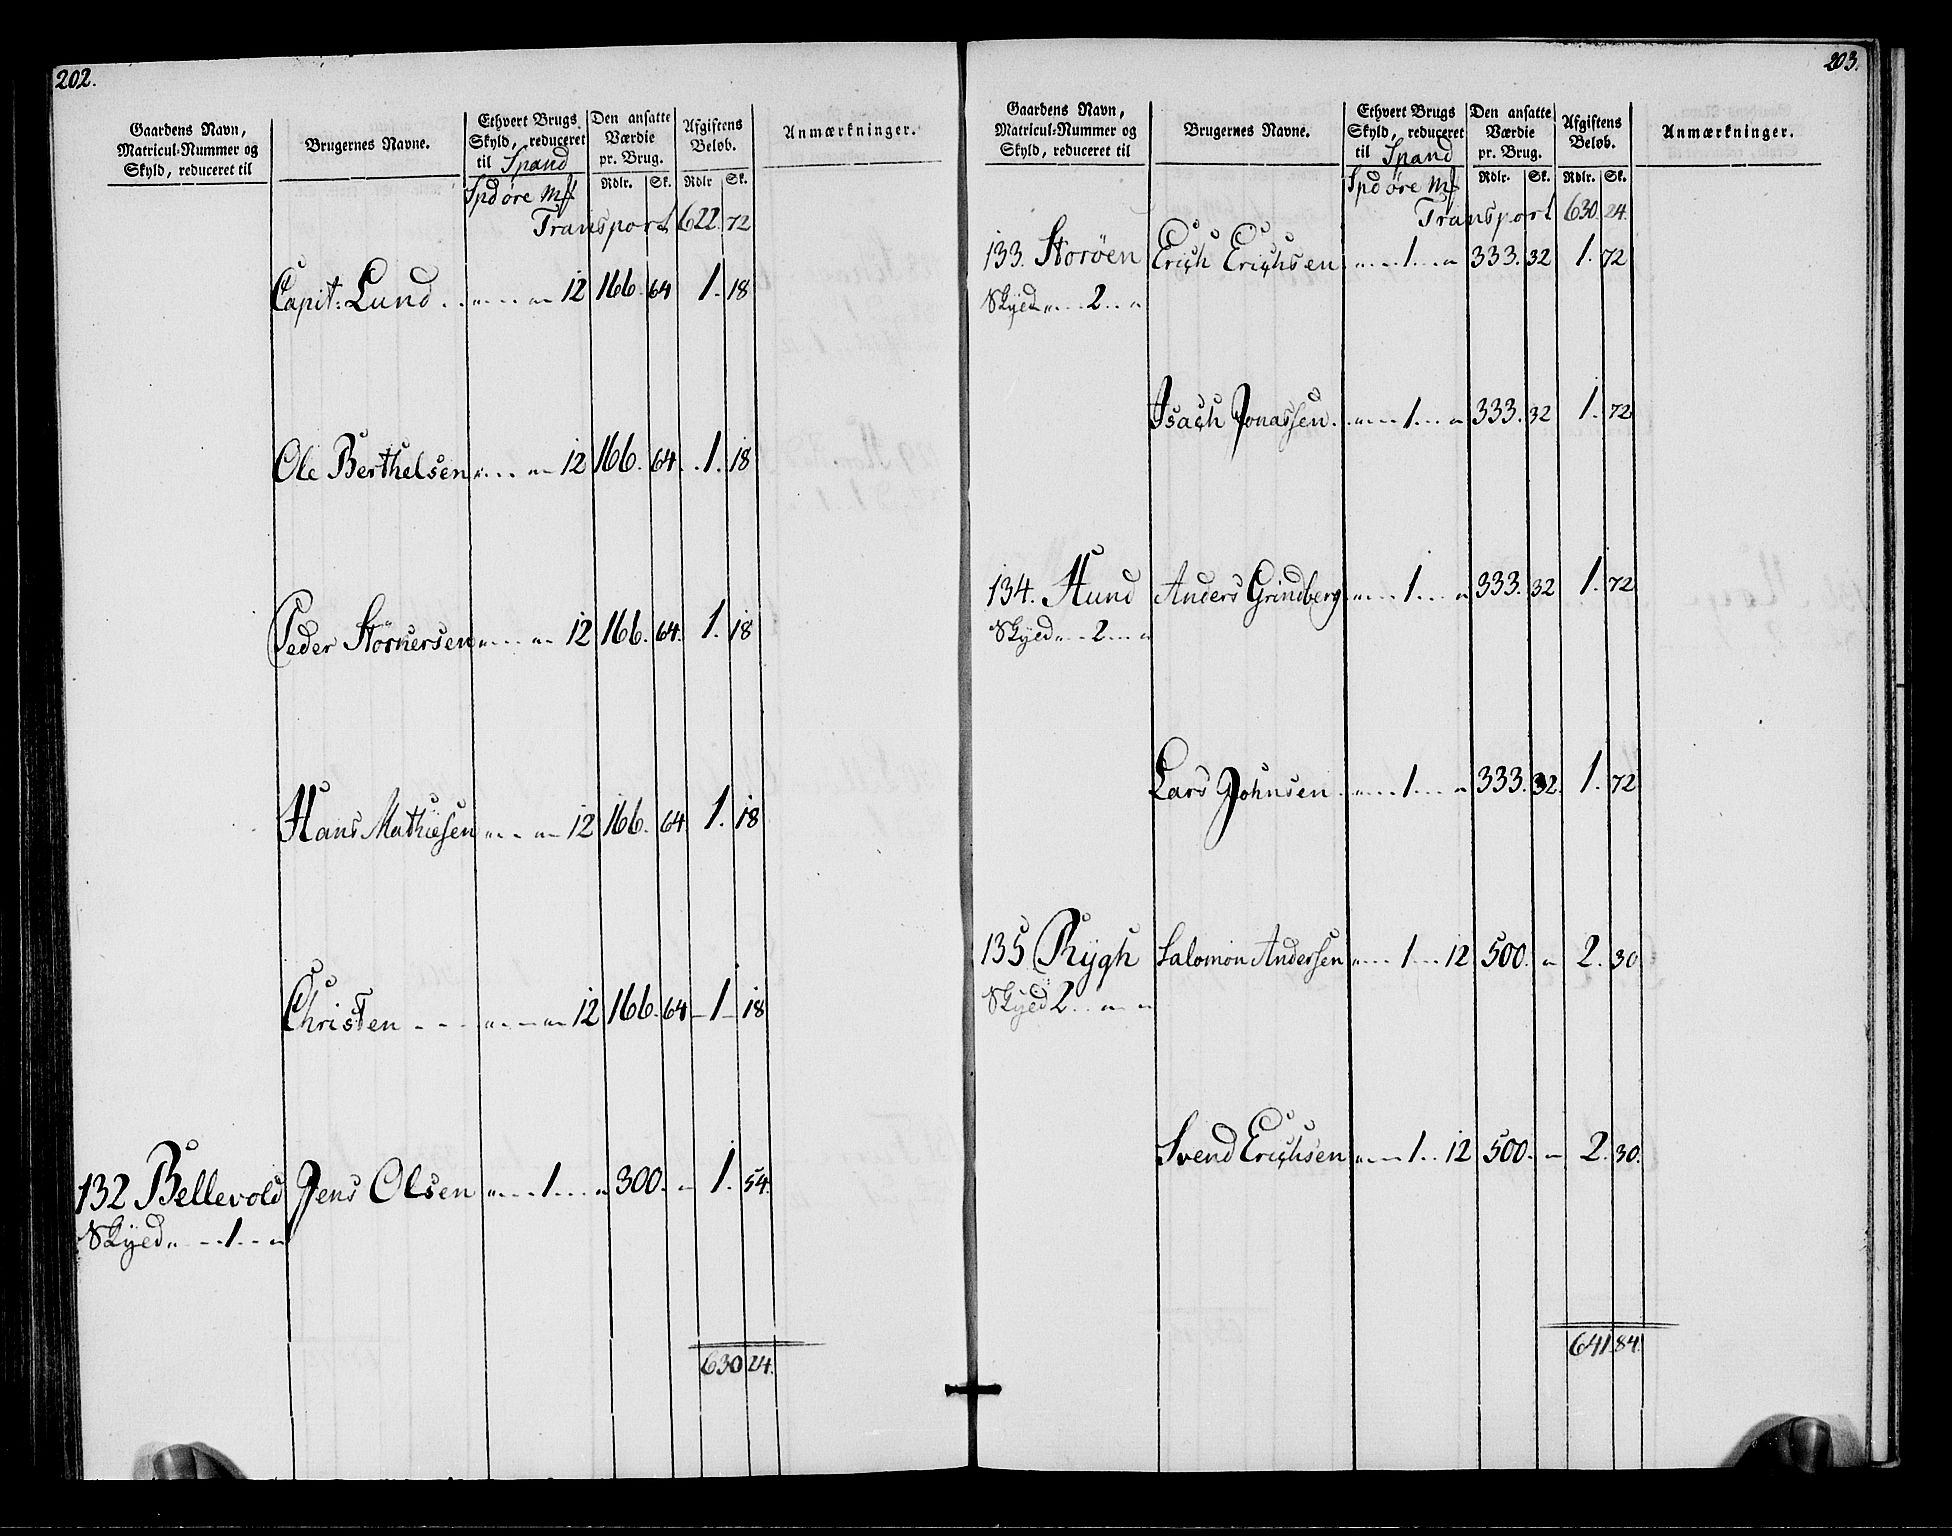 202.
Gaardens Navn, Matricul-Nummer og Skyld, reduceret til | Brugernes Navne. | Ethvert Brugs Skyld, reduceret til Spand | Den ansatte Værdie pr. Brug. | Afgiftens Beløb. | Anmærkninger.
Spd öre Mk | Rdlr. | Sk. | Rdlr | Sk.
Transport 622. 72
Capit: Lund . . „ . . . „ 12 166. 64 1. 18
Ole Berthelsen „ . . . „ 12 166. 64. 1. 18
Peder Störnersen „ . . . „ 12 166. 64. 1. 18
Hans Mathiesen „ . . „ 12 166. 64 1. 18
Christen - - - „ - „ 12 166. 64 1 18
132 Bellevold Jens Olsen „ . . . 1 . . . „ 300. „ 1. 54.
Skyed „ . . 1 . . „
630 24.
203.
Gaardens Navn, Matricul-Nummer og Skyld, reduceret til | Brugernes Navne. | Ethvert Brugs Skyld, reduceret til Spand | Den ansatte Værdie pr. Brug. | Afgiftens Beløb. | Anmærkninger.
Spd öre Mk | Rdlr. | Sk. | Rdlr. | Sk.
Transport 630. 24.
133. Storöen Erich Erichsen „ . . . 1 . . „ 333. 32 1. 72
Skyed „ . . . 2 . . „
Isach Jonassen . . „ . . 1 . . . „ 333. 32 1. 72
134. Hund Anders Grindberg „ . . . 1 . . . „ 333. 32 1. 72
Skyed „ . . 2 . . . „
Lars Johnsen . „ . . . 1 . . . „ 333. 32. 1. 72
135 Rygh Salomon Andersen „ . . . 1 . . . 12 500. „ 2. 30
Skyed 2 . . „ „
Svend Erichsen „ . . 1 . . 12 500. „ 2. 30.
641 84.